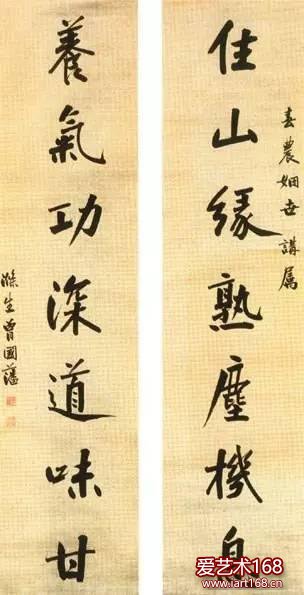 春農姻世講属
住山緣熟塵機息
養氣功深道味甘
滌生曾國藩
爱艺术168
www.iart168.com